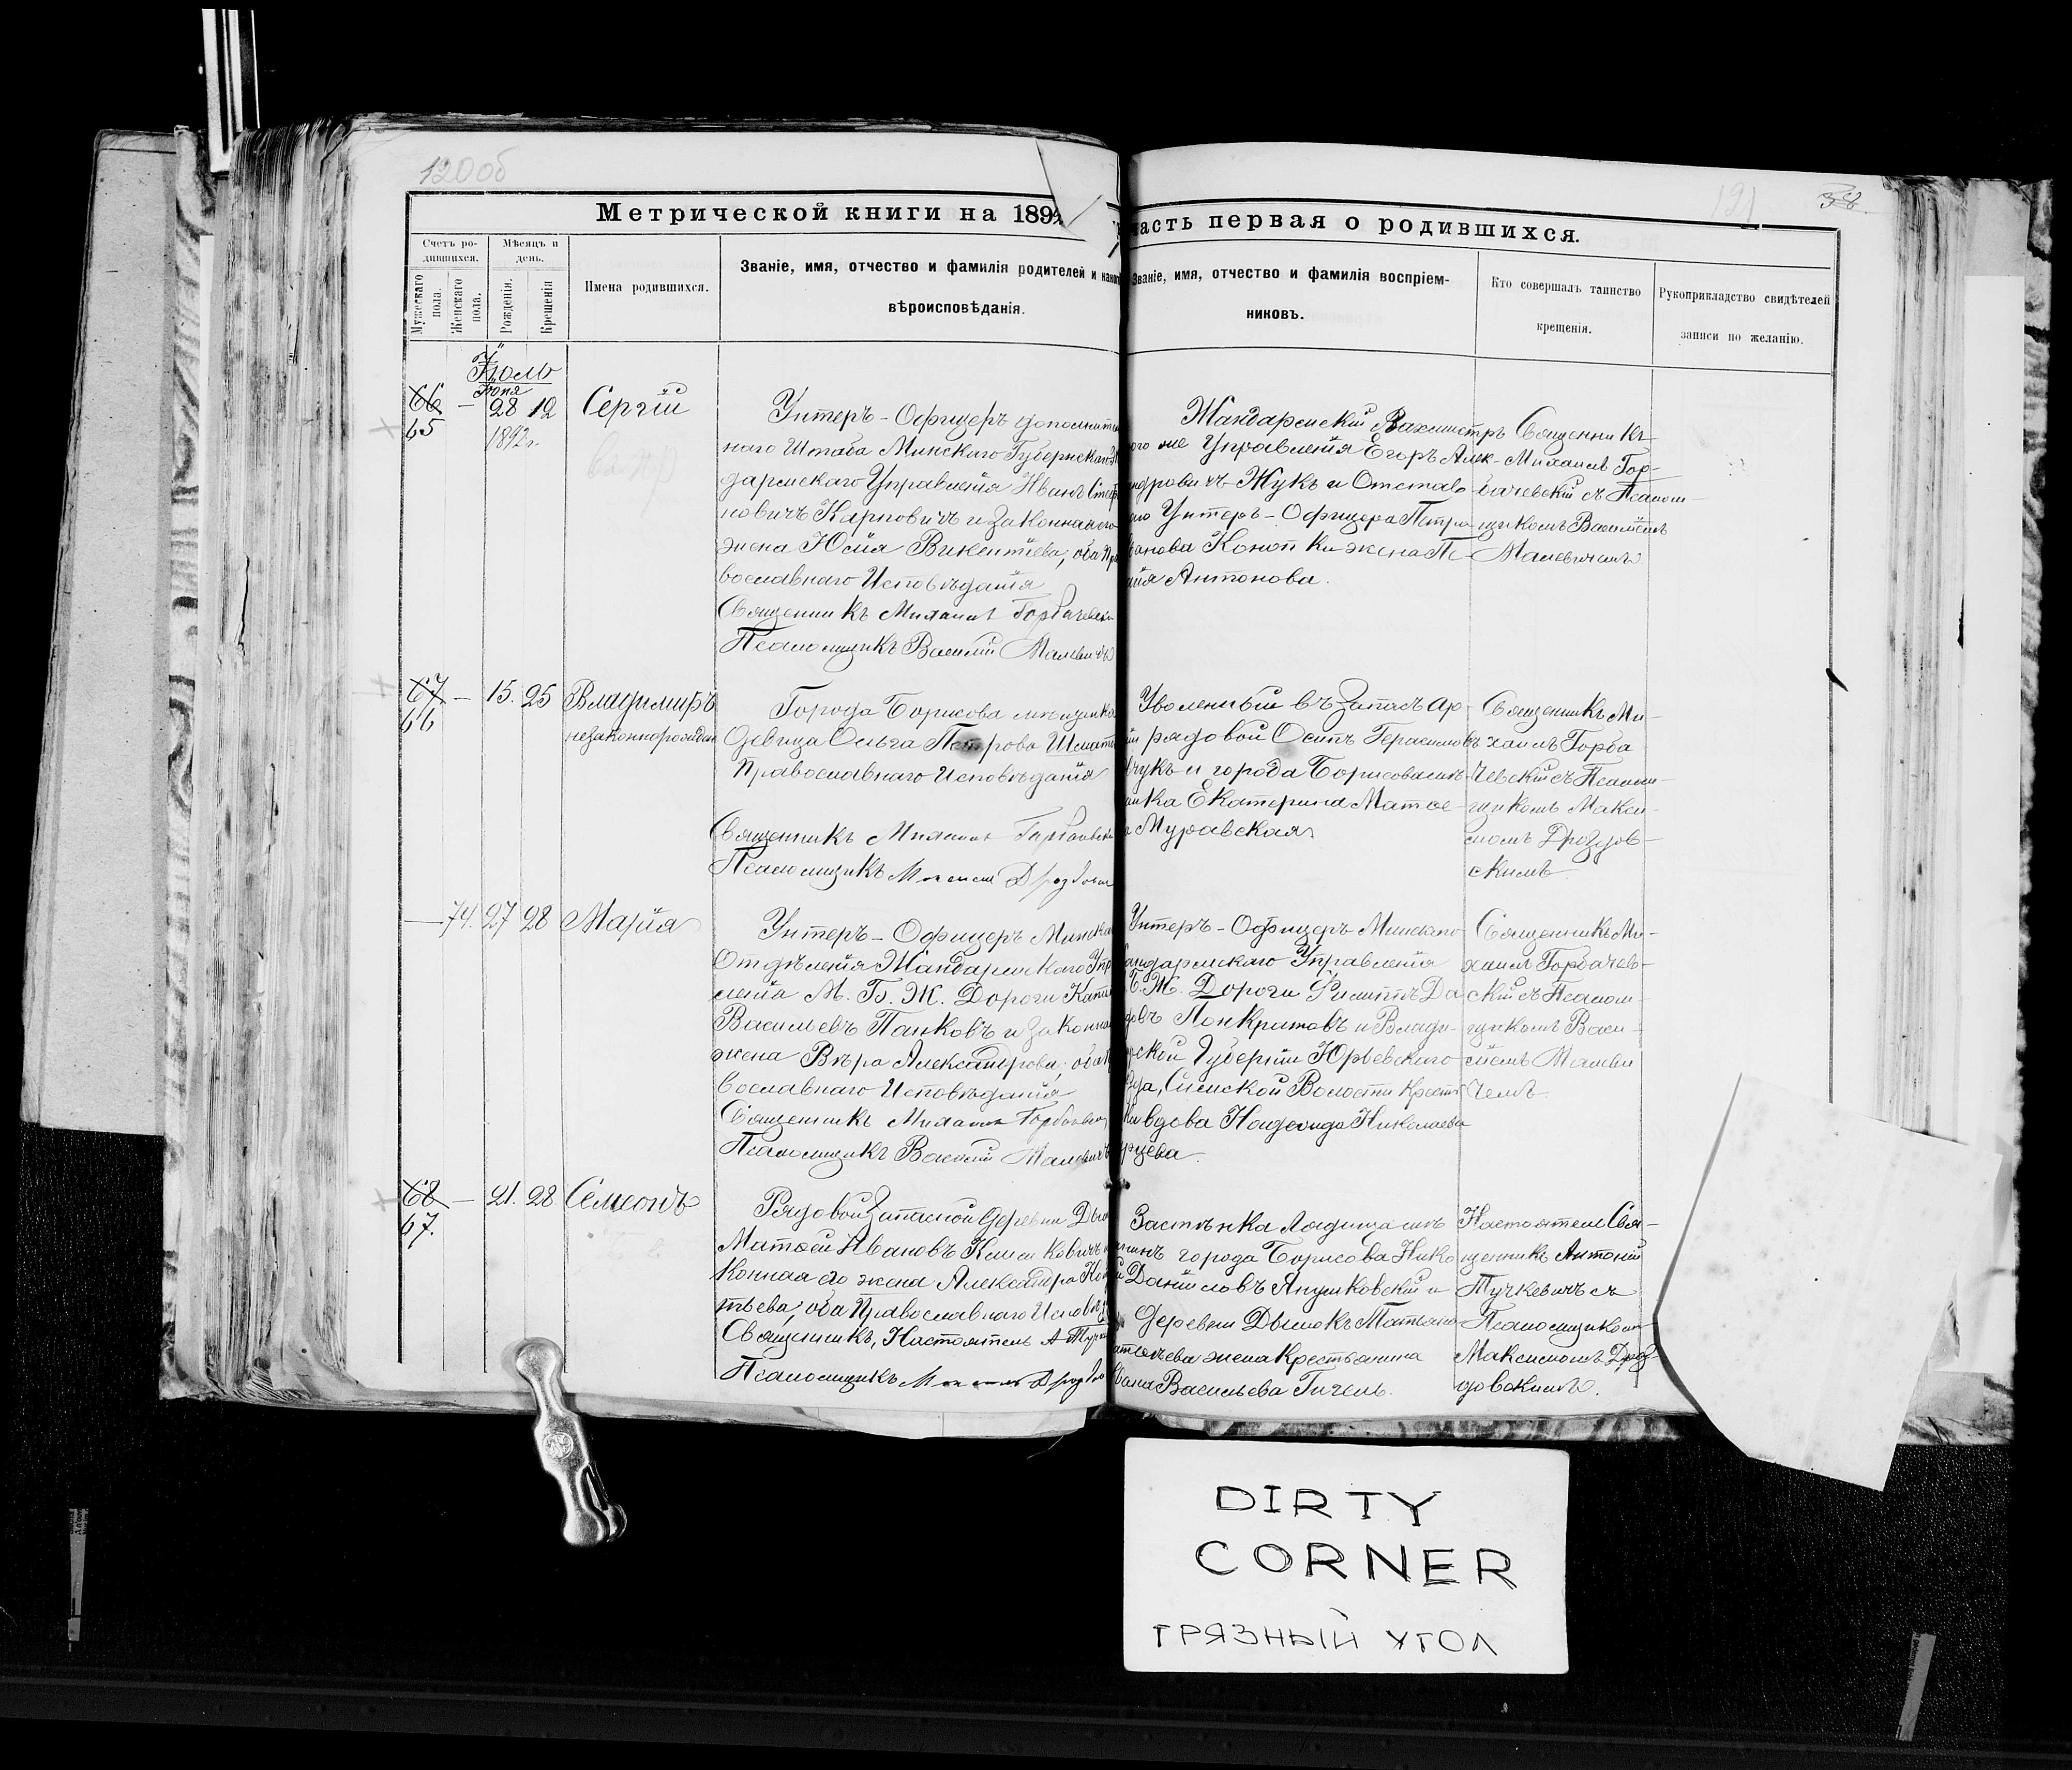 120об
121
38.
Метрической книги на 1892
часть первая о родившихся.
Счетъ ро-
дившихся.
Мѣсяцъ и
день.
Мужескаго
пола.
Женскаго
пола.
Рожденія.
Крещенія
Имена родившихся.
Званіе, имя, отчество и фамилія родителей и какого
вѣроисповѣданія.
Званіе, имя, отчество и фамилія воспріем-
никовъ.
Кто совершалъ таинство
крещенія.
Рукоприкладство свидѣтелей
записи по желанію.
Іюль
Іюня
66 — 28 12 Сергій
65
1892 г.
Унтеръ-Офицеръ дополнитель
наго Штаба Минскаго Губернскаго Ж
дармскаго Управленія Иванъ Стеф
новичъ Карповичъ и законная его
жена Юлія Викентіева, оба Пра
вославнаго Исповѣданія
Священникъ Михаилъ Горбачевскі
Псаломщикъ Василій Малевичъ
Жандармскій Вахмистръ
ого же Управленія Егоръ Алек-
ндровичъ Жукъ и Отставн
аго Унтеръ-Офицера Петра
ванова Конопки жена
Антонова.
Священникъ
Михаилъ Гор-
бачевскій съ Псалом-
щикомъ Василіемъ
Малевичемъ
67 — 15. 25 Владимиръ
66
незаконнорожден
Города Борисова мѣщанка
Дѣвица Ольга Петрова
Православнаго Исповѣданія
Священникъ Михаилъ Горбачевскі
Псаломщикъ Максимъ Дроздовск
Уволенный въ Запасъ Ар-
іи рядовой Осипъ Герасимовъ
вчукъ и города Борисова мѣщ
анка Екатерина Матѳе-
а Муравская
Священникъ Ми-
хаилъ Горба
чевскій съ Псалом-
щикомъ Макси-
момъ Дроздов-
скимъ
— 74. 27 28 Марія
Унтеръ-Офицеръ Минска
Отдѣленія Жандармскаго Упр
ленія М. Б. Ж. Дороги
Васильевъ Панковъ и законна
жена Вѣра Александрова, оба П
вославнаго Исповѣданія
Священникъ Михаилъ Горбачевск
Псаломщикъ Василій Малевичъ
Унтеръ-Офицеръ Минскаго
андармскаго Управленія
Б. Ж. Дороги Филиппъ Да
довъ Понкратовъ и Влади-
рской Губерніи Юрьевскаго
зда, Симской Волости Крестья
ка вдова Надежда Николаева
рцева.
Священникъ Ми-
хаилъ Горбачев-
скій съ Псалом-
щикомъ Васи-
ліемъ Малеви
чемъ
68 — 21. 28 Семеонъ
67.
Рядовой Запасной Деревни Дым
Матѳей Ивановъ Климковичъ и
конная его жена Александра
тьева, оба Православнаго Исповѣд
Священникъ, Настоятель А Тучк
Псаломщикъ Максимъ Дроздо
Застѣнка Лядища
нинъ города Борисова Нико
й Даниловъ Янушковскій и
Деревни Дымокъ Татьяна
жена Крестьянина
вана Васильева Гичель.
Настоятель Свя-
щенникъ Антоній
Тучкевичъ съ
Псаломщикомъ
Максимомъ Дроз-
довскимъ.
DIRTY
CORNER
ГРЯЗНЫЙ УГОЛ